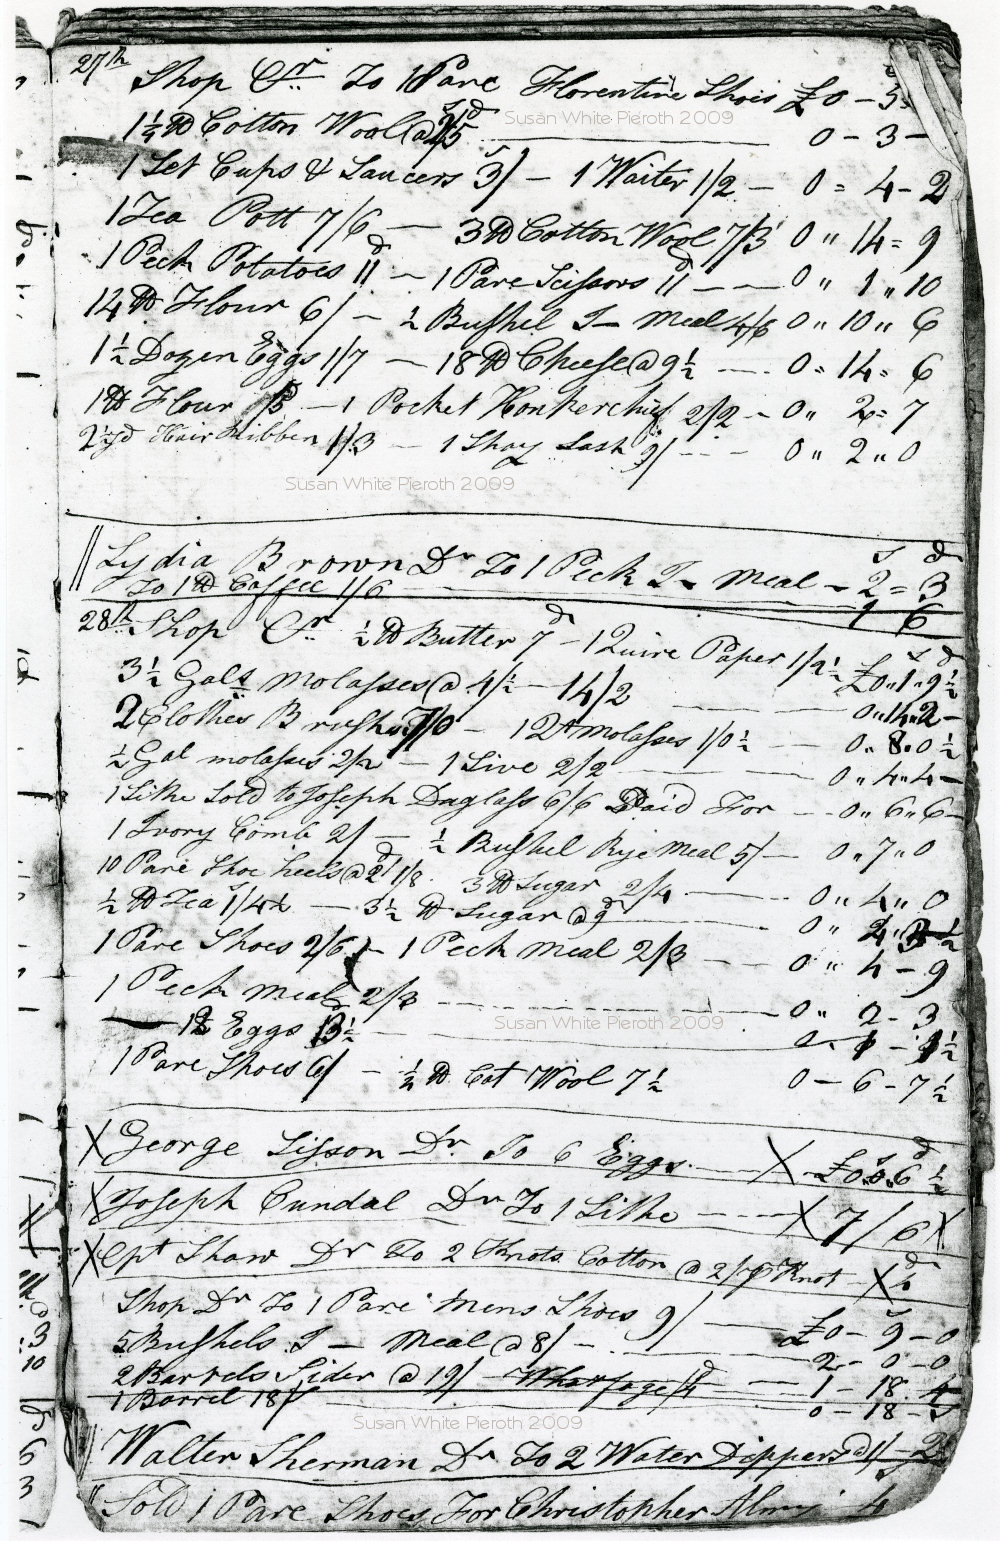 27th
Shop Cr To 1 Pare Florentine Shois £0 - 5
Susan White Pieroth 2009
1½ ℔ Cotton Wool @ 0 - 3 -
1 Set Cups & Saucers 3/ - 1 Waiter 1/2 - 0 = 4 - 2
1 Tea Pott 7/6 - 3 ℔ Cotton Wool 7/3 0 " 14 = 9
1 Peck Potatoes 11d - 1 Pare Scissors 11d - - 0 " 1 " 10
14 ℔ Flour 6/ - ½ Bushel I - Meal 4/6 0 " 10 " 6
1½ Dozen Eggs 1/7 - 18 ℔ Cheese @ 9½ - - 0 = 14 = 6
1 ℔ Flour - 1 Pocket Hankerchief 2/2 - 0 " 2 = 7
2½ yd Hair Ribben 1/3 - 1 Shay Lash 9/ - - 0 " 2 " 0
Susan White Pieroth 2009
Lydia Brown Dr To 1 Peck I - Meal - 2 = 3
s d
To 1 ℔ Coffee 1/6 - 1 6
28th Shop Cr ½ ℔ Butter 7d - 1 Quire Paper 1/2½ £0 " 1 " 9½
3½ Gals Molasses @ 4/½ - 14/2 0 " 14 " 2 -
2 Clothes Brushes 7/0 - 1 Qt Molasses 1/0½ - - 0 " 8 " 0½
½ Gal molasses 2/2 - 1 Sive 2/2 - 0 " 4 " 4 -
1 Sithe Sold to Joseph Duglass 6/6 Paid For - - 0 " 6 " 6 -
1 Ivory Comb 2/ - ½ Bushel Rye Meal 5/ - 0 " 7 " 0
10 Pare Shoe heels @ 2d 1/8 3 ℔ Sugar 2/4 - 0 " 4 " 0
½ ℔ Tea 1/4½ - 3½ ℔ Sugar @ 9 - 0 " 4 " ½
1 Pare Shoes 2/6 - 1 Peck Meal 2/3 - - 0 " 4 - 9
1 Peck Meal 2/3 - - - - 0 " 2 - 3
Susan White Pieroth 2009
12 Eggs 13½ - 0 - 1 - 1½
1 Pare Shoes 6/ - ½ ℔ Cot Wool 7½ 0 - 6 - 7½
X George Sisson Dr To 6 Eggs - X £0 " 0 " 6½
X Joseph Cundal Dr To 1 Sithe - - - X 7/6 X
X Cpt Shaw Dr To 2 Knots Cotton @ 2/ Knot X
Shop Dr To 1 Pare Mens Shoes 9/ - £0 - 9 - 0
5 Bushels I - Meal @ 8/ - 2 - 0 - 0
2 Barrels Sider @ 19/ Wharfage /4d - 1 - 18 - 4
1 Barrel 18/ 0 - 18 -
Susan White Pieroth 2009
Walter Sherman Dr To 2 Water Dippers @ 1/ - 2
Sold 1 Pare Shoes For Christopher Almy 4